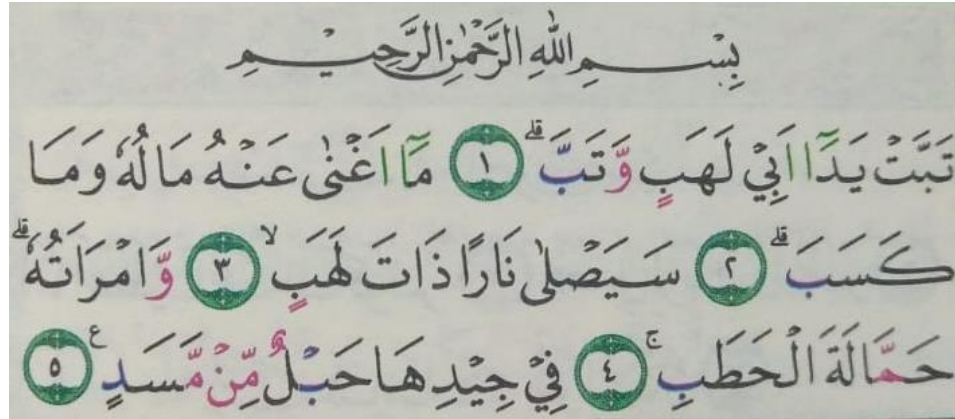 بِسْمِ اللّٰهِ الرَّحْمٰنِ الرَّحِيْمِ
تَبَّتْ يَدَآ اَبِيْ لَهَبٍ وَّتَبَّۗ ١ مَآ اَغْنٰى عَنْهُ مَالُهٗ وَمَا
كَسَبَۗ ٢ سَيَصْلٰى نَارًا ذَاتَ لَهَبٍۙ ٣ وَّامْرَاَتُهٗۗ
حَمَّالَةَ الْحَطَبِۚ ٤ فِيْ جِيْدِهَا حَبْلٌ مِّنْ مَّسَدٍࣖ ٥